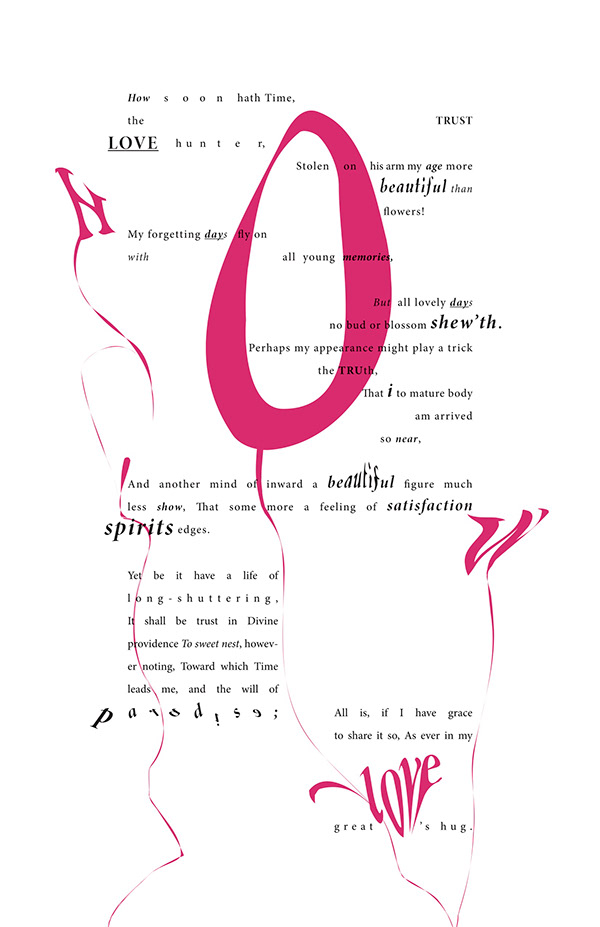 How soon hath Time,
the TRUST
LOVE hunter,
Stolen on his arm my age more
beautiful than
flowers!
N
My forgetting days fly on
with all young memories,
O
But all lovely days
no bud or blossom shew'th.
Perhaps my appearance might play a trick
the TRUth,
That i to mature body
am arrived
so near,
And another mind of inward a beautiful figure much
less show, That some more a feeling of satisfaction
spirits edges.
W
Yet be it have a life of
long-shuttering,
It shall be trust in Divine
providence To sweet nest, howev-
er noting, Toward which Time
leads me, and the will of
paradise;
All is, if I have grace
to share it so, As ever in my
love
great 's hug.